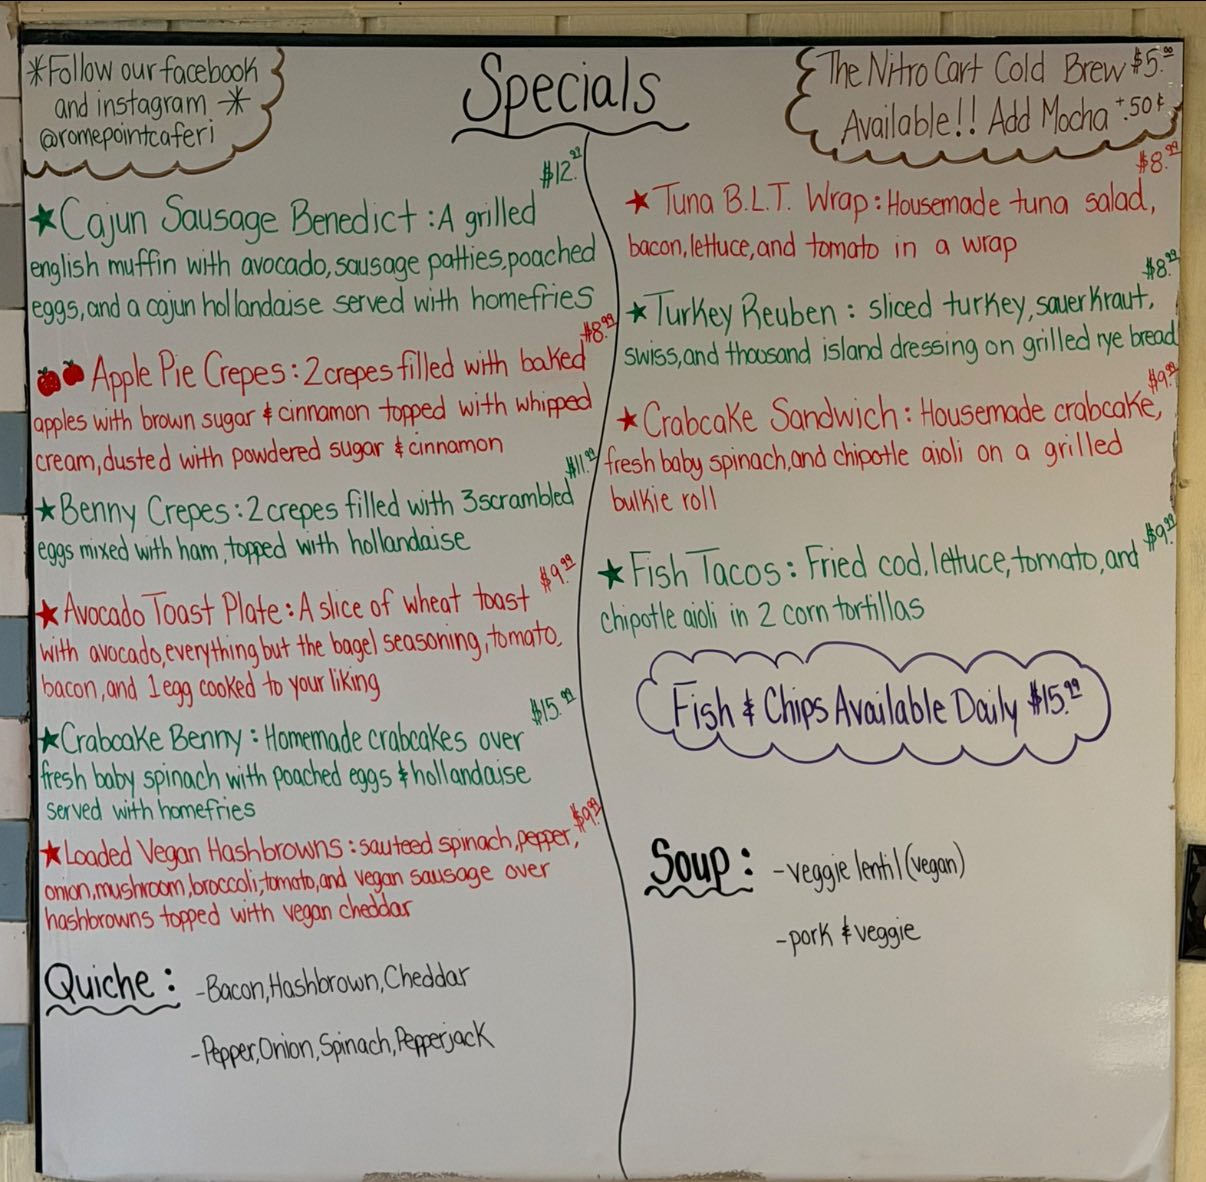 *Follow our facebook
and instagram *
@romepointcaferi
Specials
The Nitro Cart Cold Brew $5.00
Available!! Add Mocha +.50¢
$12.99
★Cajun Sausage Benedict : A grilled
english muffin with avocado, sausage patties, poached
eggs, and a cajun hollandaise served with homefries
$8.99
Apple Pie Crepes : 2 crepes filled with baked
apples with brown sugar & cinnamon topped with whipped
cream, dusted with powdered sugar & cinnamon
$11.99
★Benny Crepes : 2 crepes filled with 3 scrambled
eggs mixed with ham, topped with hollandaise
$9.99
★Avocado Toast Plate : A slice of wheat toast
with avocado, everything but the bagel seasoning, tomato,
bacon, and 1 egg cooked to your liking
$15.99
★Crabcake Benny : Homemade crabcakes over
fresh baby spinach with poached eggs & hollandaise
served with homefries
$9.99
★Loaded Vegan Hashbrowns : sauteed spinach, pepper,
onion, mushroom, broccoli, tomato, and vegan sausage over
hashbrowns topped with vegan cheddar
Quiche : -Bacon, Hashbrown, Cheddar
-Pepper, Onion, Spinach, Pepperjack
$8.99
★Tuna B.L.T. Wrap : Housemade tuna salad,
bacon, lettuce, and tomato in a wrap
$8.99
★Turkey Reuben : sliced turkey, sauerkraut,
swiss, and thousand island dressing on grilled rye bread
$9.99
★Crabcake Sandwich : Housemade crabcake,
fresh baby spinach, and chipotle aioli on a grilled
bulkie roll
$9.99
★Fish Tacos : Fried cod, lettuce, tomato, and
chipotle aioli in 2 corn tortillas
Fish & Chips Available Daily $15.99
Soup : -veggie lentil (vegan)
-pork & veggie